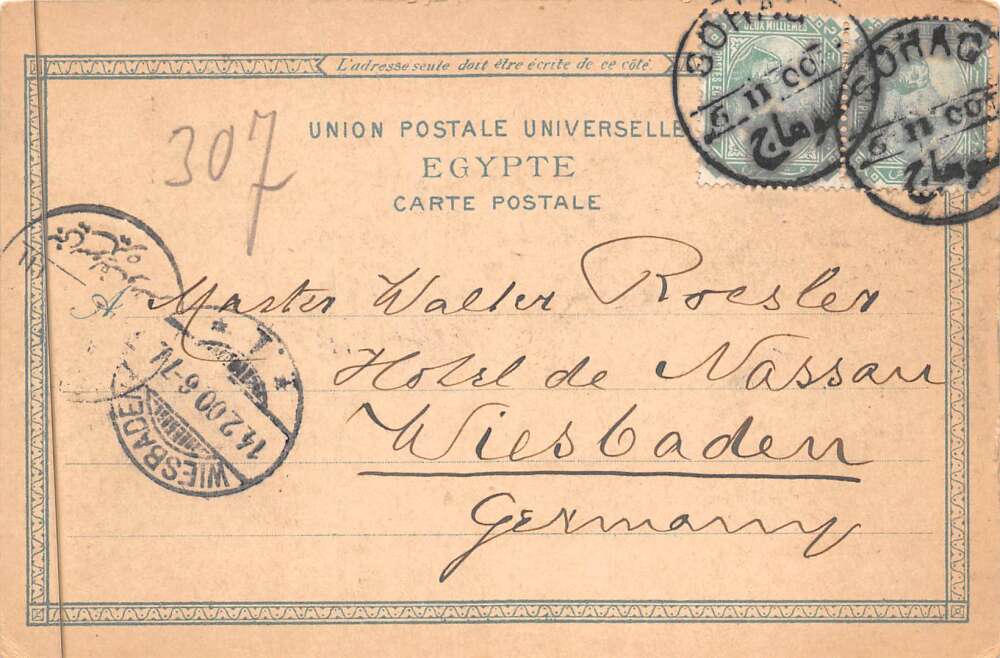 DEUX MILLIEMES
L'adresse seule doit être écrite de ce côté.
UNION POSTALE UNIVERSELLE
EGYPTE
CARTE POSTALE
307
SOHAG
سوهاج
SOHAG
سوهاج
A Master Walter Roesler
Hotel de Nassau
Wiesbaden
Germany
WIESBADEN
14.2.00.6-7N.
* 1.1